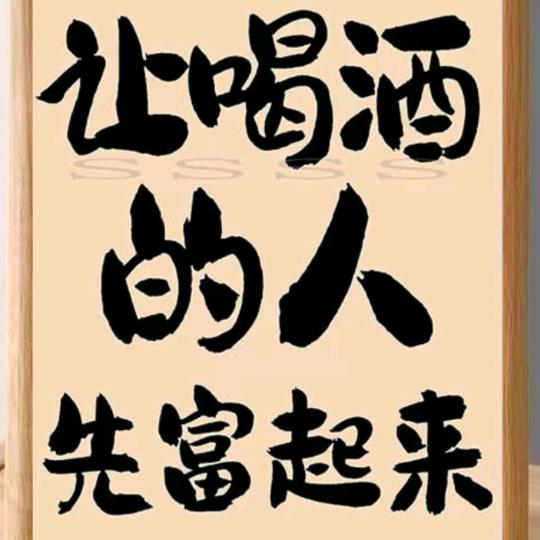 让喝酒
SSSS
的人
先富起来